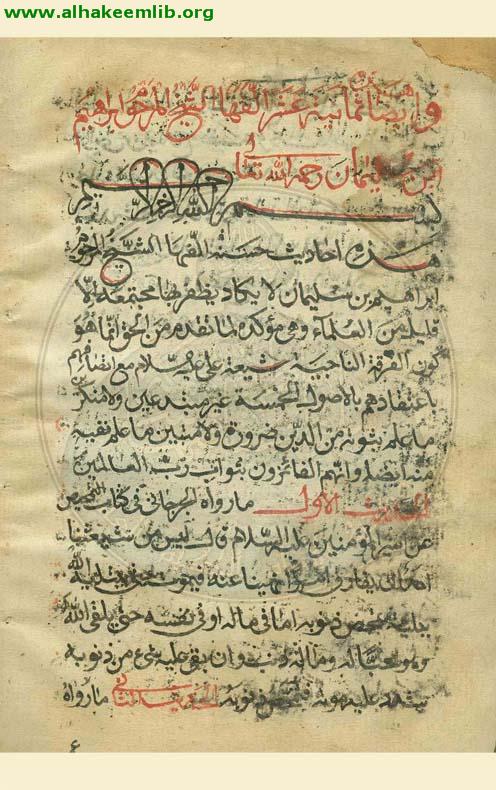 www.alhakeemlib.org
وايضا ثمانية عشر الفها الشيخ المرحوم ابراهيم
بن سليمان رحمه الله تعالى
بسم الله الرحمن الرحيم
هذه احاديث حسنة الفها الشيخ المرحوم
ابراهيم بن سليمان لا يكاد يظفر بها مجتمعة الا
قليل من العلماء وهي مؤكدة لما تقدم من الحق انما هو
كون الفرقة الناجية شيعة علي عليه السلام مع
باعتقادهم بالاصول الخمسة غير مبتدعين ولا منكرين
ما علم ثبوته من الدين ضرورة ولا مثبتين ما علم نفيه
منه ايضا وانهم الفائزون بثواب رب العالمين
الحديث الاول ما رواه الجرجاني في كتاب
عن امير المؤمنين عليه السلام قال ليس من شيعتنا
احد يقارف امرا نهيناه عنه فيموت حتى يبتليه الله
ببلية تمحص ذنوبه اما في ماله او في نفسه حتى يلقى الله
وماله ذنب وان بقي عليه شيء من ذنوبه
يشدد عليه موته فتمحص ذنوبه الحديث الثاني ما رواه